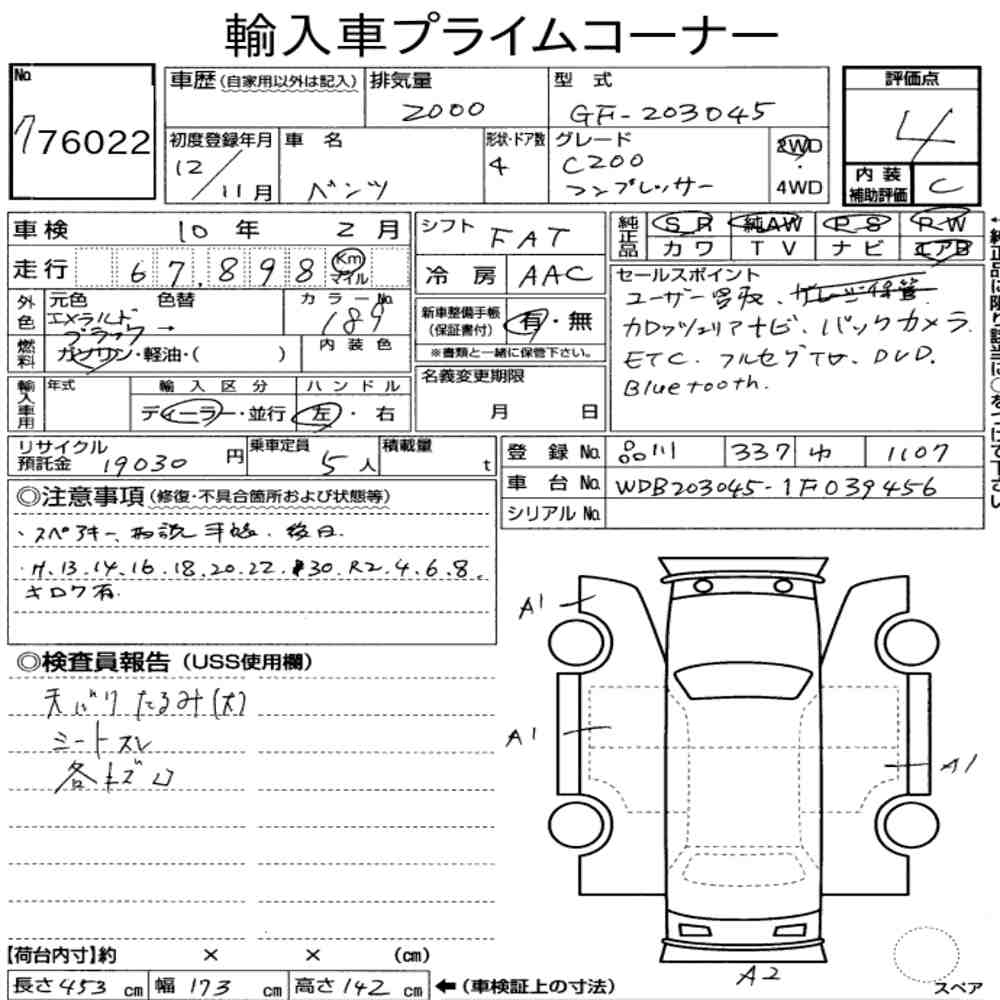 輸入車プライムコーナー
No. 776022
車歴 (自家用以外は記入)
排気量 2000
型式 GF-203045
評価点 4
初度登録年月 12/11月
車名 ベンツ
形状・ドア数 4
グレード C200 コンプレッサー
2WD・4WD
内装補助評価 C
車検 10年 2月
シフト FAT
純正品 SR 純AW PS PW
カワ TV ナビ エアB
走行 67,898 Km マイル
冷房 AAC
セールスポイント
ユーザー買取、
カロッツェリアナビ、バックカメラ
ETC、フルセグTV、DVD、
Bluetooth.
外色 元色 エメラルドブラック→ 色替
カラーNo. 189
新車整備手帳 (保証書付) 有・無
※書類と一緒に保管下さい。
燃料 ガソリン・軽油・( )
内装色
名義変更期限 月 日
輸入車用 年式
輸入区分 ディーラー・並行
ハンドル 左・右
リサイクル預託金 19030円
乗車定員 5人
積載量 t
登録No. 品川 337 ゆ 1107
車台No. WDB203045-1F039456
シリアルNo.
◎注意事項 (修復・不具合箇所および状態等)
・スペアキー、取説、手帳、後日.
・H.13.14.16.18.20.22.30.R2.4.6.8.
キロク有.
◎検査員報告 (USS使用欄)
天バリたるみ(大)
シートスレ
各キズ凹
A1
A1
A1
A2
スペア
【荷台内寸】約 × × (cm)
長さ453cm 幅173cm 高さ142cm ←(車検証上の寸法)